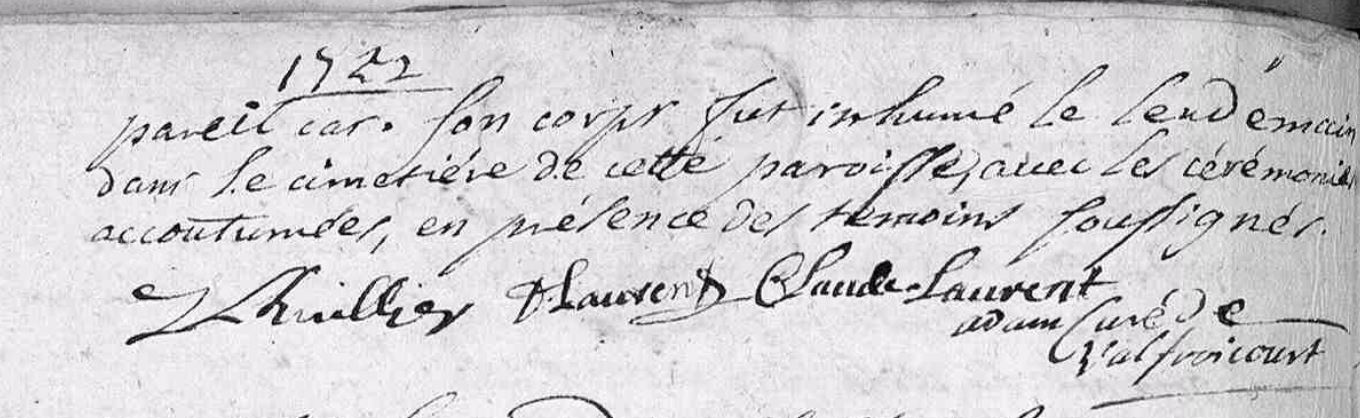 1722
pareil cas. son corps fut inhumé le lendemain
dans le cimetiére de cette paroisse, avec les cérémonies
accoutumées, en présence des temoins soussignés.
Lhuillier D. Laurent Claude Laurent
adam Curé de
Valfroicourt